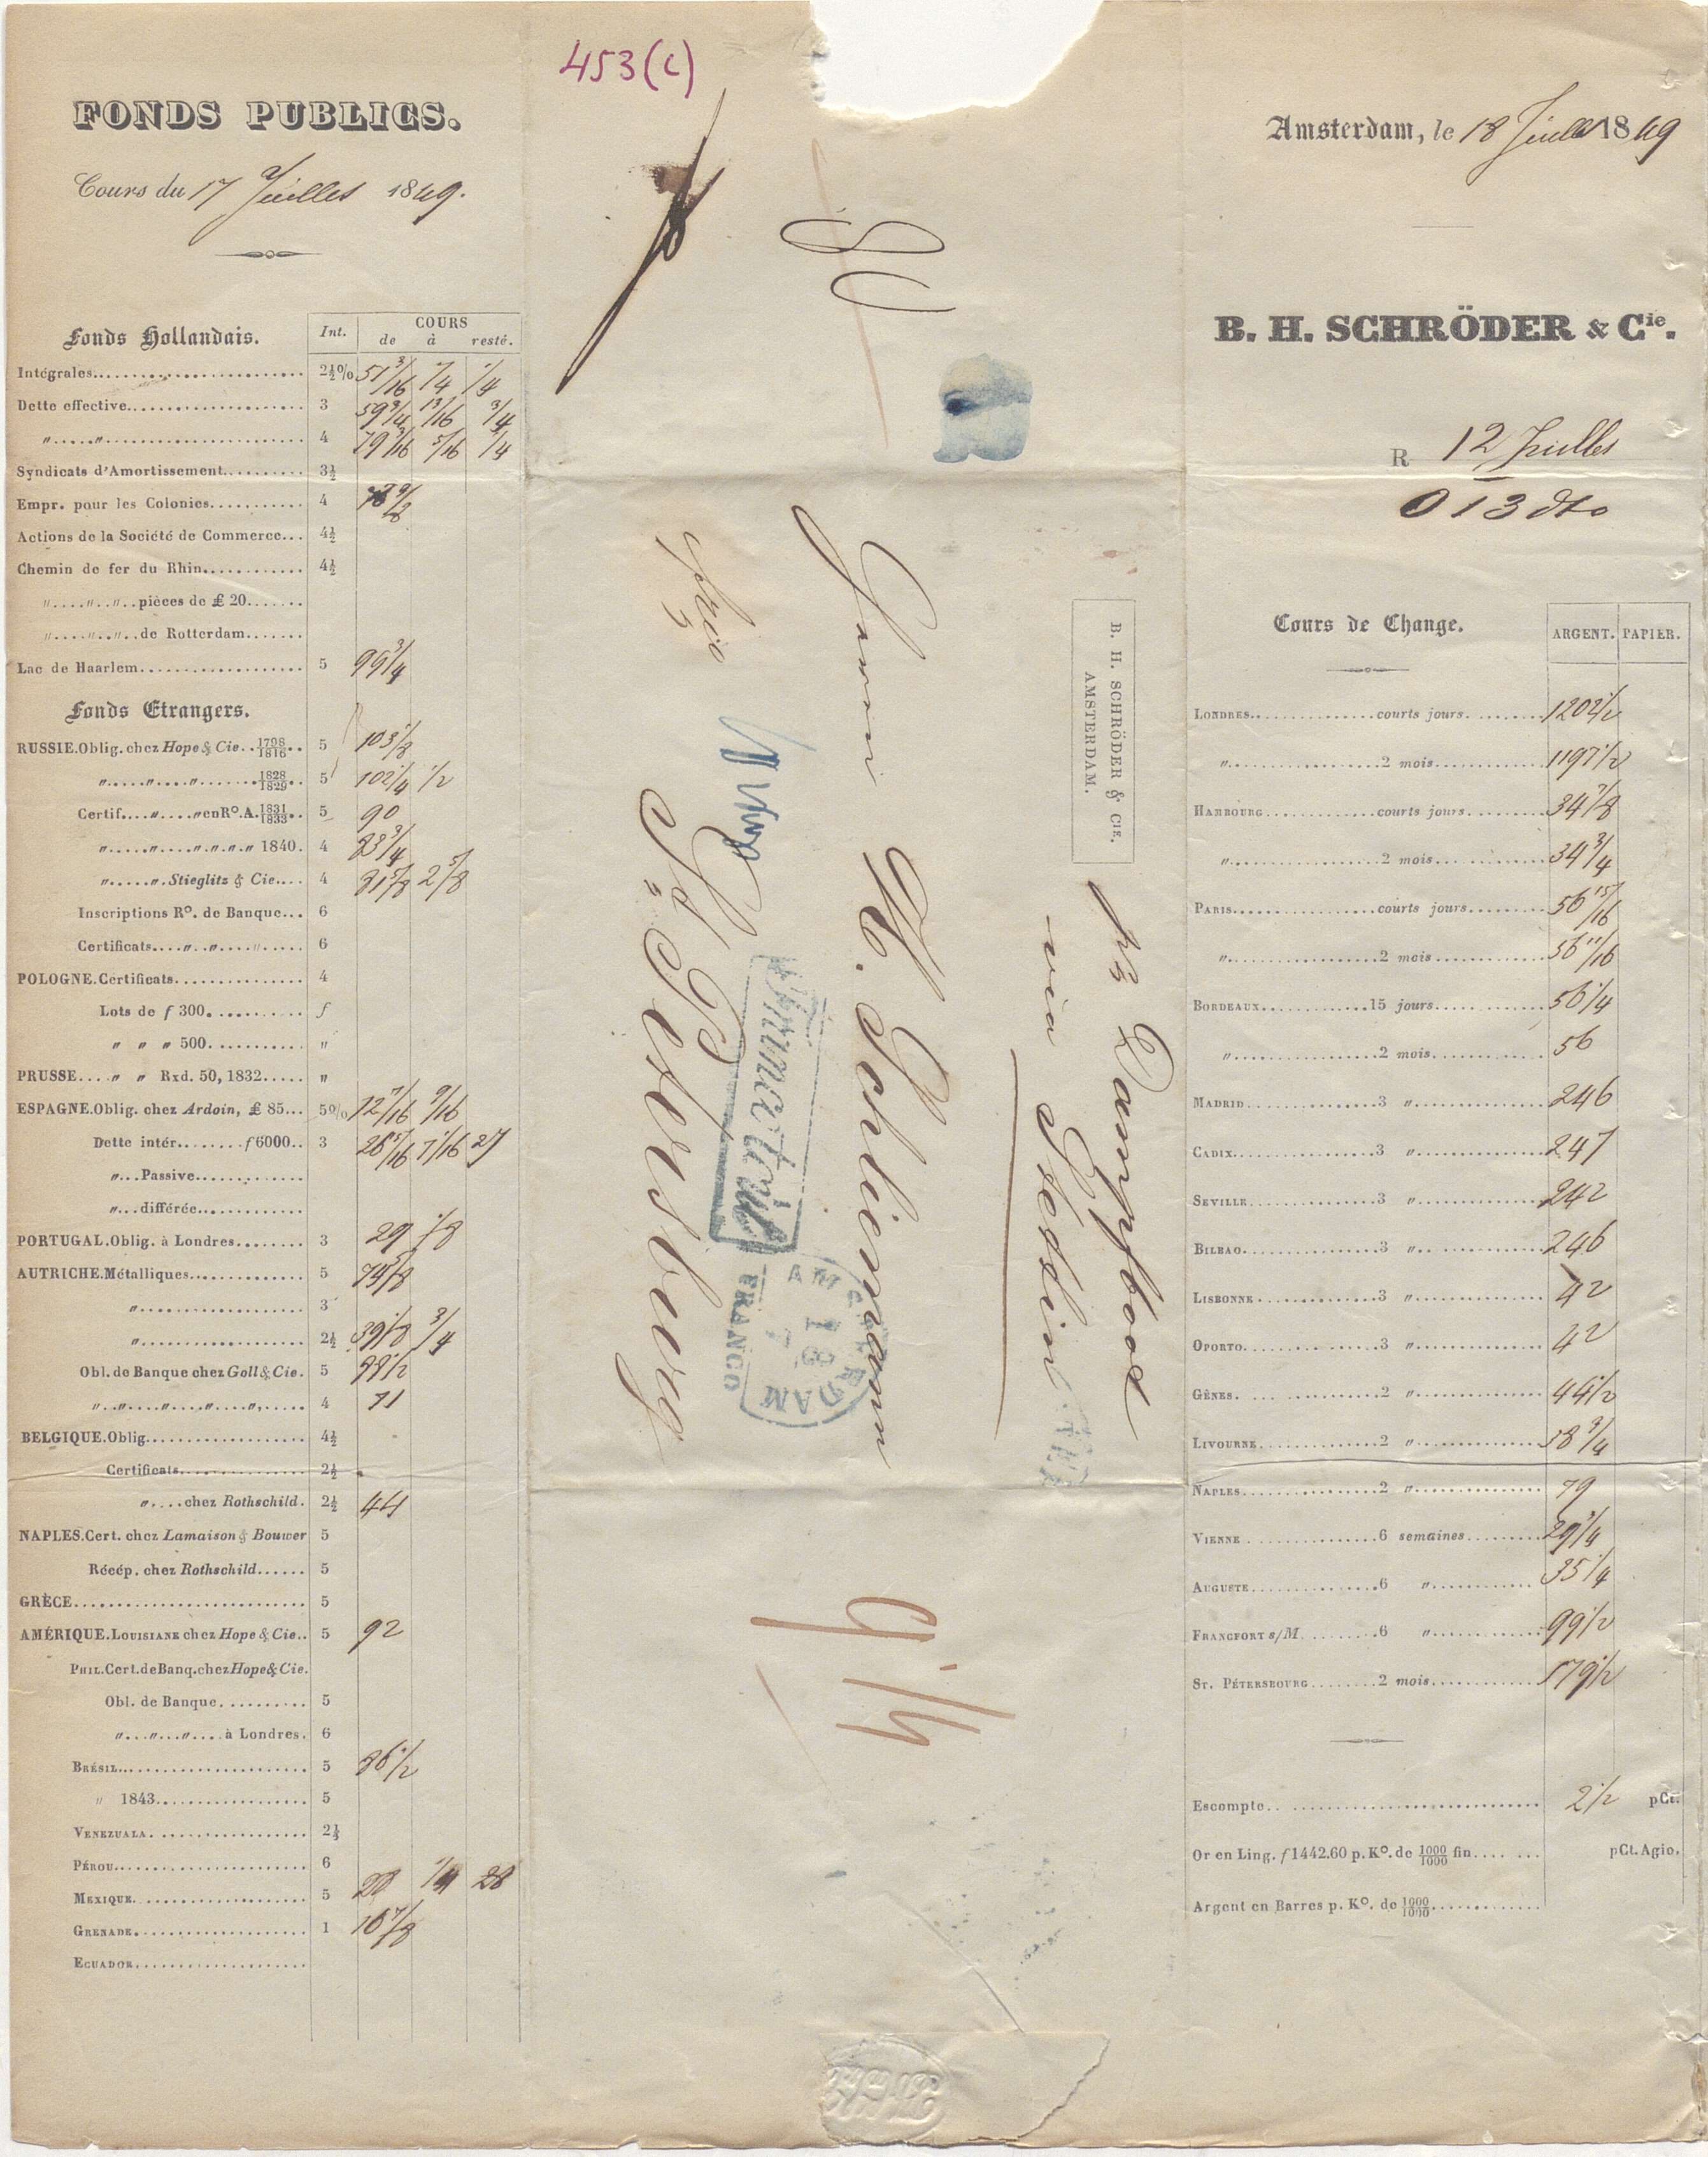 453(c)
FONDS PUBLICS.
Cours du 17 Juillet 1849.
Fonds Hollandais. Int. COURS
de à resté.
Intégrales 2½% 51 3/16 1/4 1/4
Dette effective 3 59 3/4 13/16 3/4
" " 4 79 3/16 5/16 1/4
Syndicats d'Amortissement 3½
Empr. pour les Colonies 4
Actions de la Société de Commerce 4½
Chemin de fer du Rhin 4½
" " " pièces de £ 20
" " " de Rotterdam
Lac de Haarlem 5
Fonds Etrangers.
RUSSIE. Oblig. chez Hope & Cie. 1798/1816 5 103 1/8
" " " 1828/1829 5 102 1/4 1/2
Certif. " " en Ro. A. 1831/1833 5 90
" " " " " " 1840. 4 83 3/4
" " Stieglitz & Cie. 4 81 7/8 2 5/8
Inscriptions Ro. de Banque 6
Certificats " " " 6
POLOGNE. Certificats 4
Lots de f 300. f
" " " 500. "
PRUSSE " " Rxd. 50, 1832 "
ESPAGNE. Oblig. chez Ardoin, £ 85 5% 12 7/16 9/16
Dette intér. f 6000 3 26 15/16 7 1/16 27
" Passive
" différée
PORTUGAL. Oblig. à Londres 3 29 1/8
AUTRICHE. Métalliques 5 74 5/8
" 3
" 2½ 39 1/8 3/4
Obl. de Banque chez Goll & Cie. 5
" " " " " 4 71
BELGIQUE. Oblig. 4½
Certificats 2½
" chez Rothschild. 2½ 44
NAPLES. Cert. chez Lamaison & Bouwer 5
Récép. chez Rothschild 5
GRÈCE 5
AMÉRIQUE. LOUISIANE chez Hope & Cie. 5 92
PHIL. Cert. de Banq. chez Hope & Cie.
Obl. de Banque 5
" " " à Londres. 6
BRÉSIL 5 86 1/2
" 1843 5
VENEZUALA 2½
PÉROU 6
MEXIQUE 5 28
GRENADE 1 16 7/8
ECUADOR
Herrn H. Schliemann
St. Petersburg
franco
pr Dampfboot
via Stettin
B. H. SCHRÖDER & CIE.
AMSTERDAM.
AMSTERDAM
18
7
FRANCO
9 1/4
Amsterdam, le 18 Juillet 1849
B. H. SCHRÖDER & Cie.
R 12 Juillet
O 13 dto
Cours de Change. ARGENT. PAPIER.
LONDRES courts jours 1202 1/2
" 2 mois 1197 1/2
HAMBOURG courts jours 34 7/8
" 2 mois 34 3/4
PARIS courts jours 56 15/16
" 2 mois 56 11/16
BORDEAUX 15 jours 56 1/4
" 2 mois 56
MADRID 3 " 246
CADIX 3 " 247
SEVILLE 3 " 242
BILBAO 3 " 246
LISBONNE 3 " 42
OPORTO 3 " 42
GÈNES 2 " 44 1/2
LIVOURNE 2 " 38 3/4
NAPLES 2 " 79
VIENNE 6 semaines 29 1/4
AUGUSTE 6 " 35 1/4
FRANCFORT s/M 6 " 99 1/2
ST. PÉTERSBOURG 2 mois 179 1/2
Escompte 2 1/2 pCt.
Or en Ling. f 1442.60 p. Ko. de 1000/1000 fin pCt. Agio.
Argent en Barres p. Ko. de 1000/1000